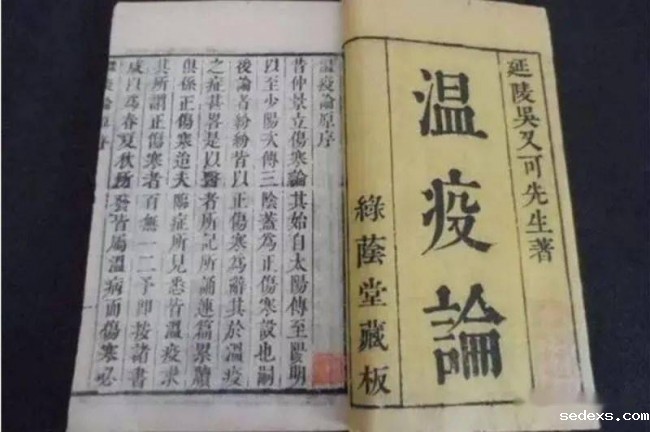 延陵吳又可先生著
温疫論
綠蔭堂藏板
温疫論原序
昔仲景立傷寒論其始自太陽傳至陽明
以至少陽次傳三陰蓋爲正傷寒設也嗣
後論者紛紛皆以正傷寒爲辭其於温疫
之症甚畧是以醫者所記所誦連篇累牘
俱係正傷寒迨夫臨症所見悉皆温疫求
其所謂正傷寒者百無一二予即按諸書
咸以爲春夏秋所發皆屬温病而傷寒必
sedexs.com